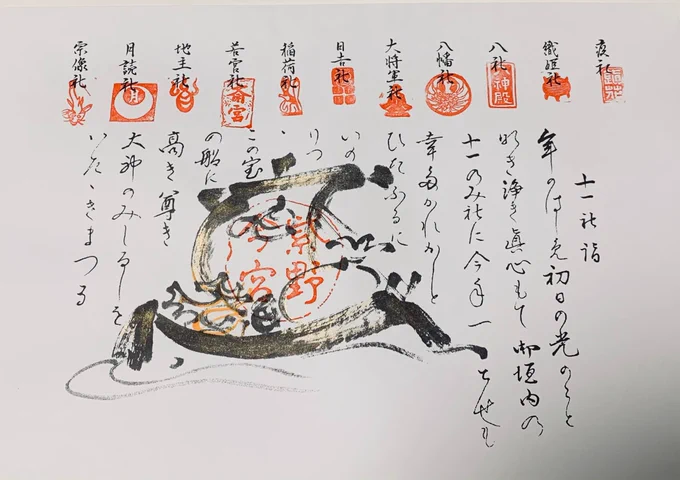 疫社
織姫社
八社
神殿
八幡社
大将軍社
日吉社
稲荷社
若宮社
斎宮
地主社
月読社
月
宗像社
十一社詣
年のはしめ初日の光のこと
明き浄き眞心もて御垣内の
十一のみ社に今年一とせも
幸多かれかしと
ひたふるに
いの
りつ
ゝ
この宝
の船に
高き尊き
大神のみしるしを
いたゝきまつる
紫野
今宮